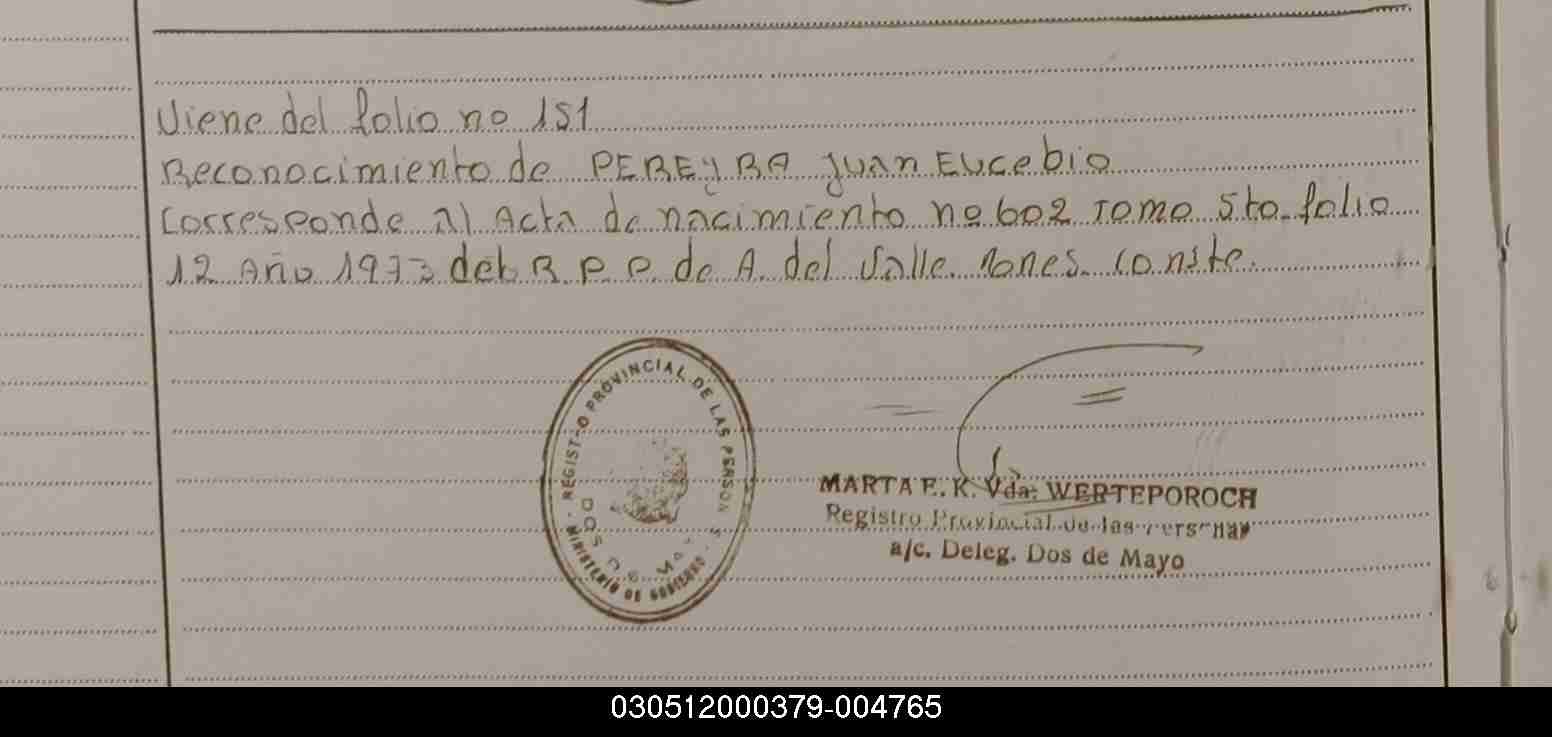 Viene del folio no 151
Reconocimiento de PEREYRA Juan Eucebio
Corresponde al Acta de nacimiento no 602 Tomo 5to folio
12 Año 1973 del R.P.P. de A. del Valle. Mones. Conste.
REGISTRO PROVINCIAL DE LAS PERSONAS
DOS DE MAYO
MINISTERIO DE GOBIERNO
MARTA E. K. Vda. WERTEPOROCH
Registro Provincial de las Personas
a/c. Deleg. Dos de Mayo
030512000379-004765